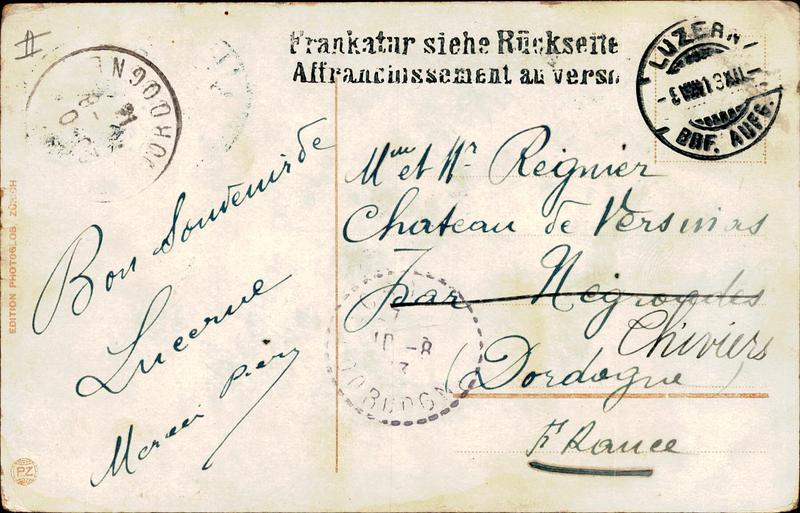 II
Frankatur siehe Rückseite
Affranchissement au verso
LUZERN
BRF. AUFG.
DORDOGNE
Bon Souvenir de
Lucerne
Mme et Mr Regnier
Chateau de Versinas
par Négrondes
Thiviers
(Dordogne)
France
10 - 8
13
DORDOGN
EDITION PHOTOGLOB. ZÜRICH
PZ